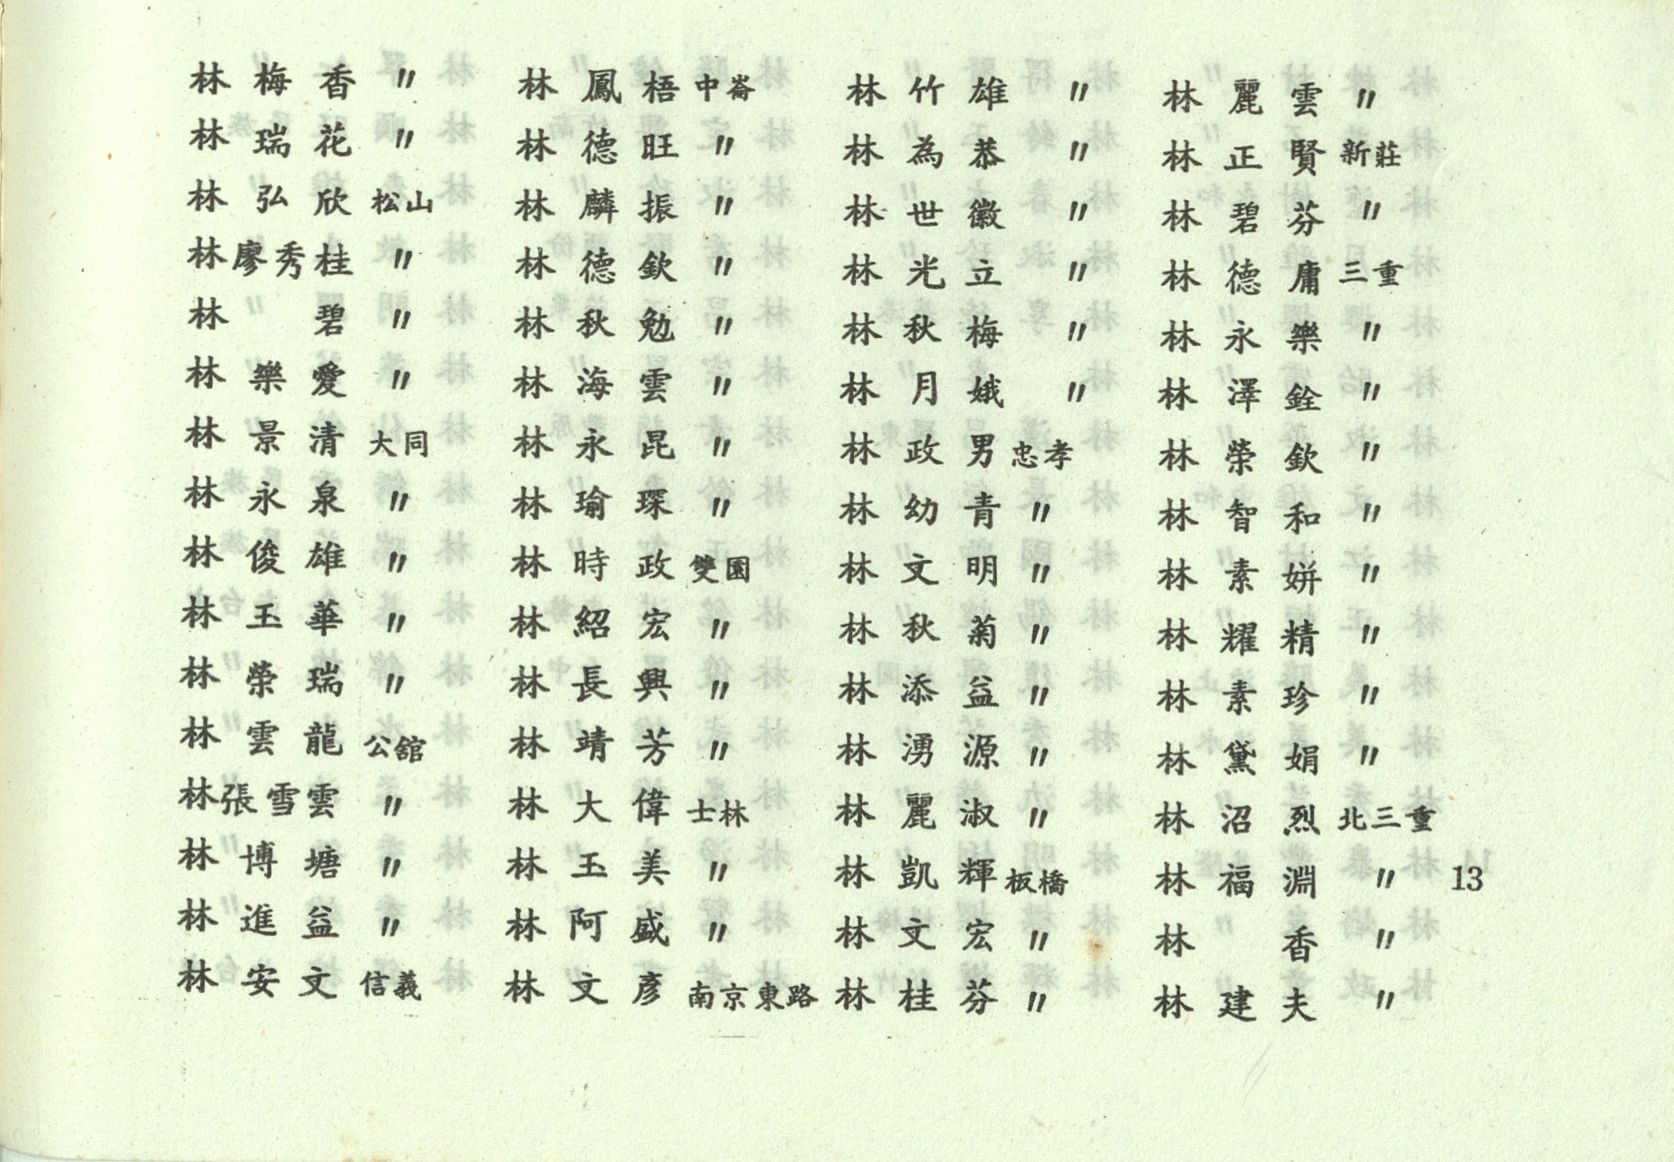 林梅香 〃
林瑞花 〃
林弘欣 松山
林廖秀桂 〃
林碧 〃
林樂愛 〃
林景清 大同
林永泉 〃
林俊雄 〃
林玉華 〃
林榮瑞 〃
林雲龍 公舘
林張雪雲 〃
林博塘 〃
林進益 〃
林安文 信義
林鳳梧 中崙
林德旺 〃
林麟振 〃
林德欽 〃
林秋勉 〃
林海雲 〃
林永昆 〃
林瑜琛 〃
林時政 雙園
林紹宏 〃
林長興 〃
林靖芳 〃
林大偉 士林
林玉美 〃
林阿盛 〃
林文彥 南京東路
林竹雄 〃
林為恭 〃
林世徽 〃
林光立 〃
林秋梅 〃
林月娥 〃
林政男 忠孝
林幼青 〃
林文明 〃
林秋菊 〃
林添益 〃
林湧源 〃
林麗淑 〃
林凱輝 板橋
林文宏 〃
林桂芬 〃
林麗雲 〃
林正賢 新莊
林碧芬 〃
林德庸 三重
林永樂 〃
林澤銓 〃
林榮欽 〃
林智和 〃
林素姘 〃
林耀精 〃
林素珍 〃
林黛娟 〃
林沼烈 北三重
林福淵 〃
林香 〃
林建夫 〃
13